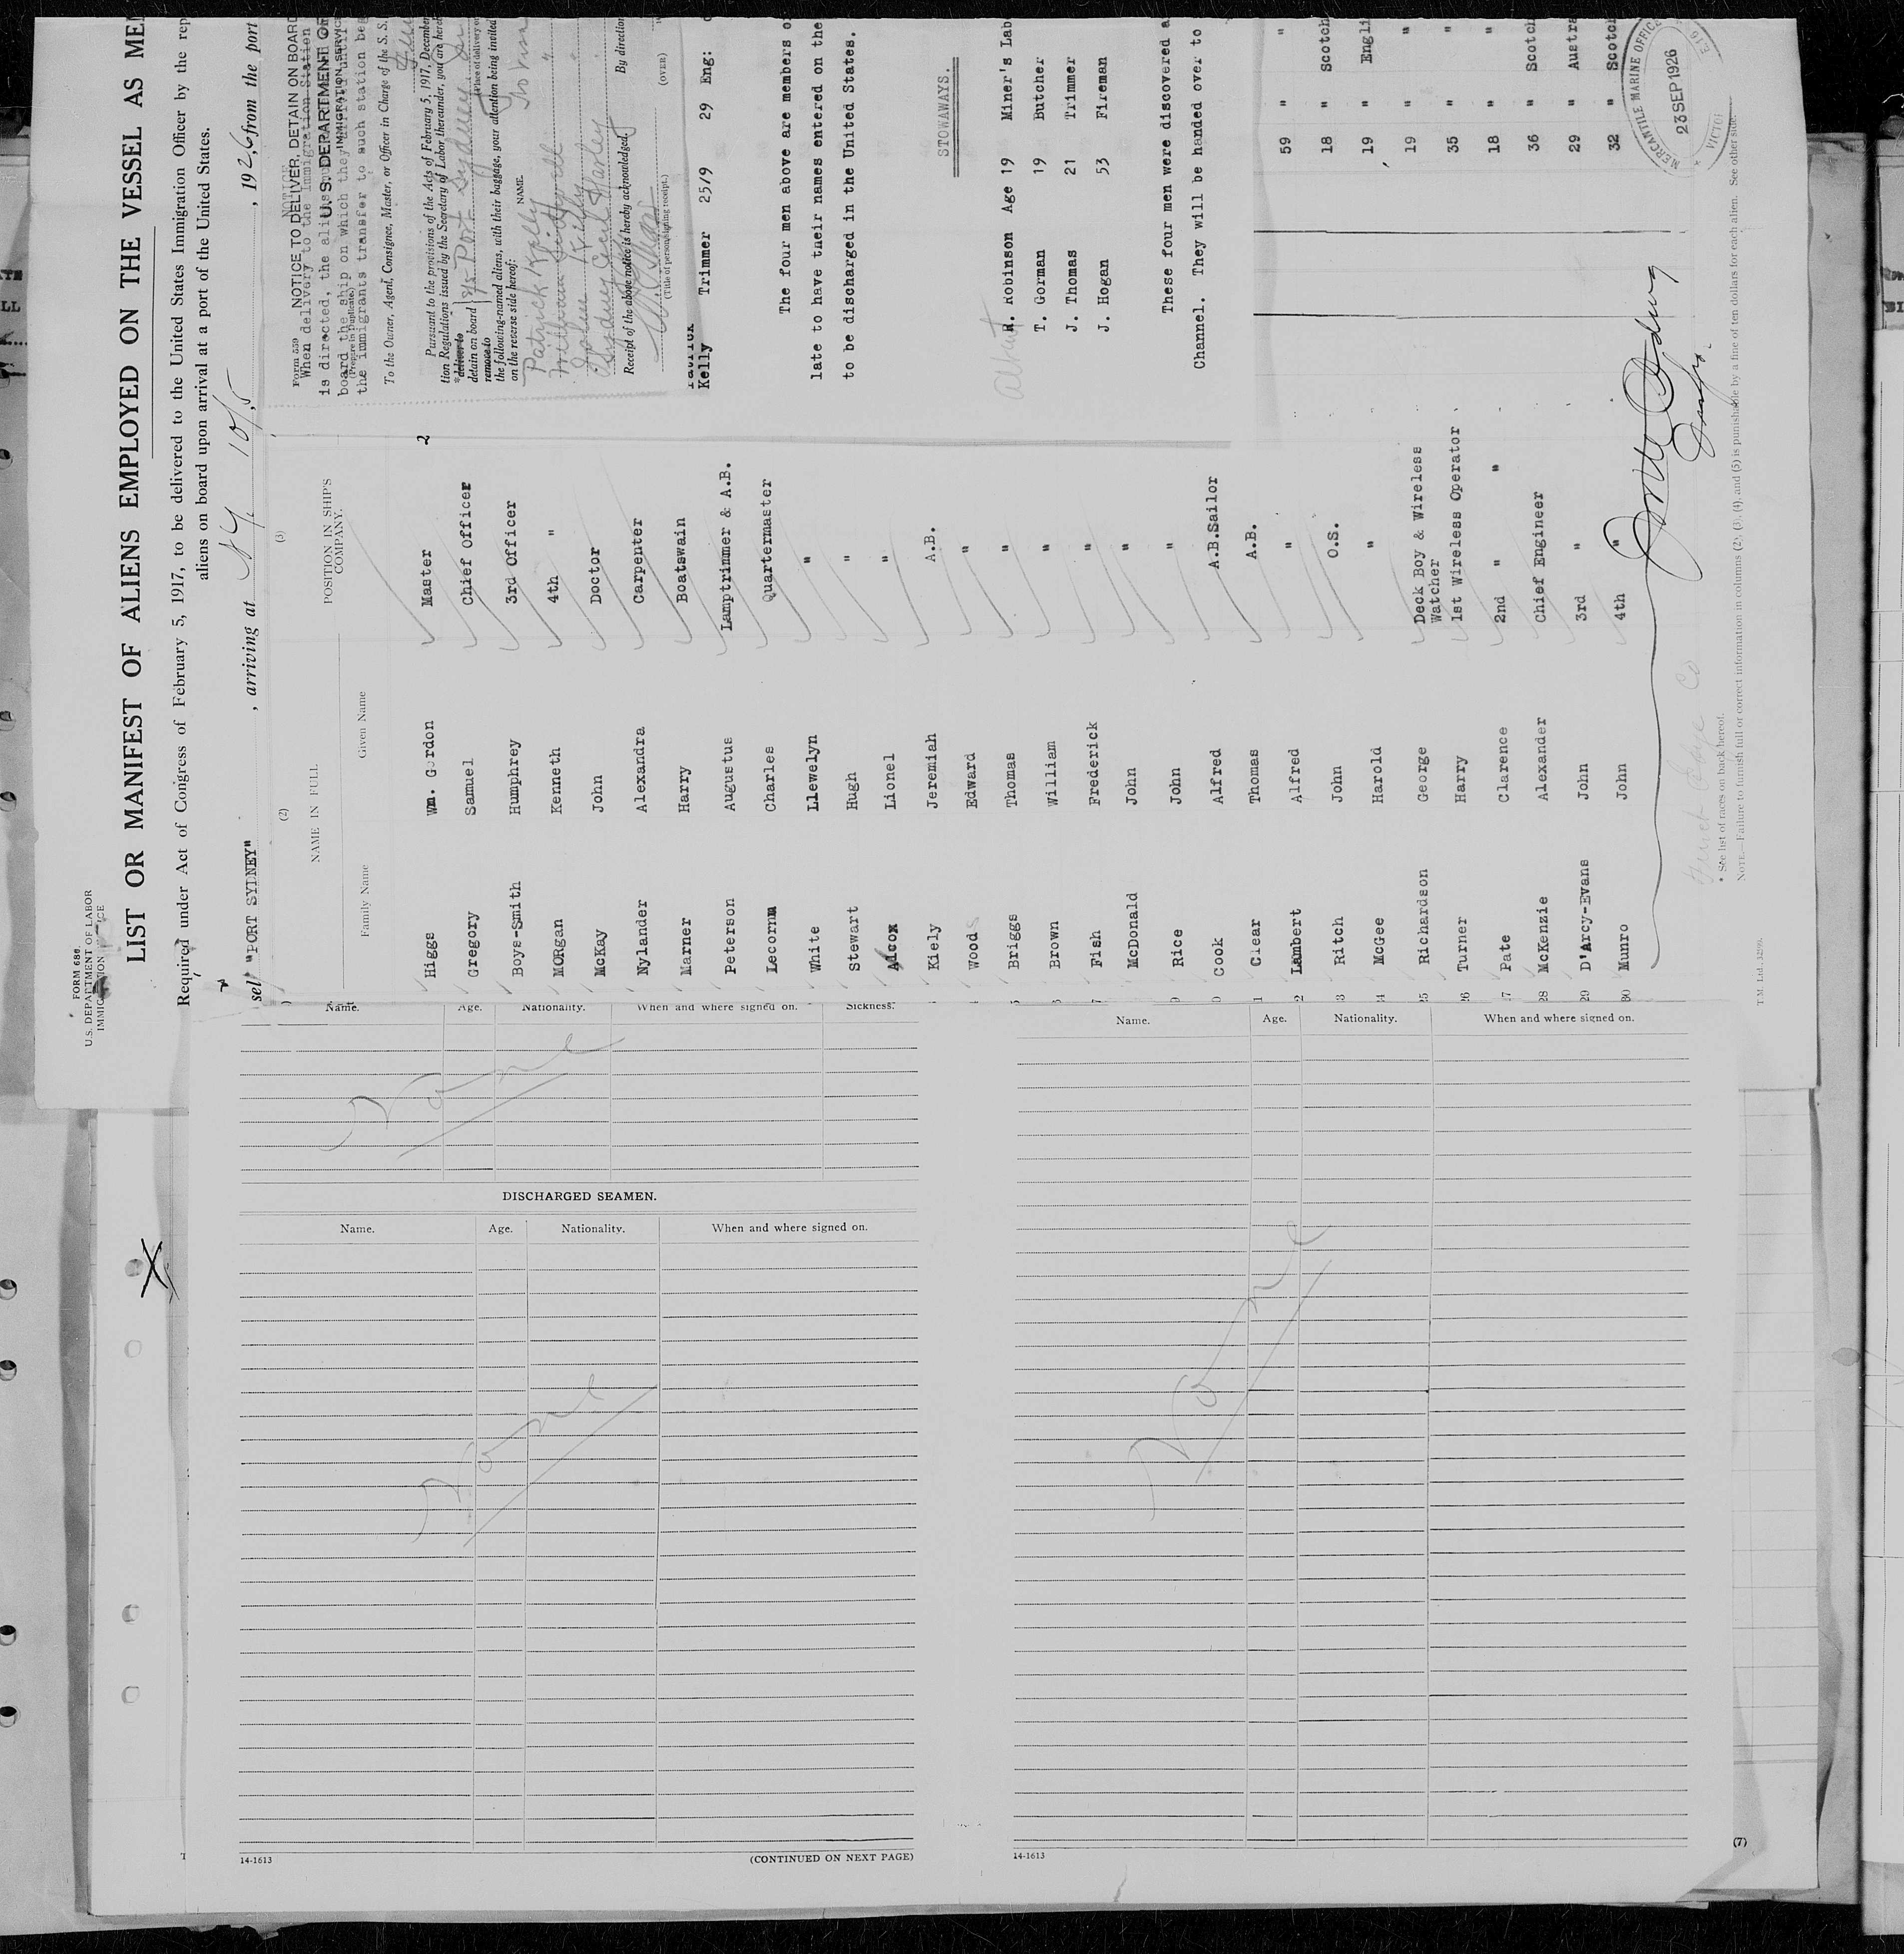 FORM 680
U.S. DEPARTMENT OF LABOR
LIST OR MANIFEST OF ALIENS EMPLOYED ON THE VESSEL AS MEM
Required under Act of Congress of February 5, 1917, to be delivered to the United States Immigration Officer by the rep
aliens on board upon arrival at a port of the United States.
sel "PORT SYDNEY" , arriving at N.Y. 10/5 , 1926, from the port
(2) (3)
NAME IN FULL POSITION IN SHIP'S
COMPANY.
Family Name Given Name
2
Higgs Wm. Gordon Master
Gregory Samuel Chief Officer
Boys-Smith Humphrey 3rd Officer
MORgan Kenneth 4th "
McKay John Doctor
Nylander Alexandra Carpenter
Marner Harry Boatswain
Peterson Augustus Lamptrimmer & A.B.
Lecornn Charles Quartermaster
White Llewelyn "
Stewart Hugh "
Adcox Lionel "
Kiely Jeremiah A.B.
Woods Edward "
Briggs Thomas "
Brown William "
Fish Frederick "
McDonald John "
Rice John "
Cook Alfred A.B.Sailor
Clear Thomas A.B.
Lambert Alfred " 59 " "
Ritch John O.S. 18 " Scotch
McGee Harold " 19 " Engli
25 Richardson George Deck Boy & Wireless 19 " "
Watcher
26 Turner Harry 1st Wireless Operator 35 " "
27 Pate Clarence 2nd " " 18 " "
28 McKenzie Alexander Chief Engineer 36 " Scotch
29 D'Arcy-Evans John 3rd " 29 " Austra
30 Munro John 4th " 32 " Scotch
* See list of races on back hereof.
NOTE.—Failure to furnish full or correct information in columns (2), (3), (4), and (5) is punishable by a fine of ten dollars for each alien. See other side.
MERCANTILE MARINE OFFICE
23 SEP 1926
Form 559
NOTICE TO DELIVER, DETAIN ON BOARD
When delivery to the Immigration Station
U.S. DEPARTMENT OF
IMMIGRATION SERVICE
is directed, the aliens
board the ship on which they
the immigrants transfer to such station be
(Prepare in Duplicate)
To the Owner, Agent, Consignee, Master, or Officer in Charge of the S. S.
Pursuant to the provisions of the Acts of February 5, 1917, December
tion Regulations issued by the Secretary of Labor thereunder, you are here
*deliver to
detain on board S/s Port Sydney
remove to
the following-named aliens, with their baggage, your attention being invited
on the reverse side hereof:
NAME.
Patrick Kelly
Receipt of the above notice is hereby acknowledged.
By direction
(Title of person signing receipt.)
(OVER)
Patrick
Kelly Trimmer 25/9 29 Eng:
The four men above are members o
late to have their names entered on the
to be discharged in the United States.
STOWAWAYS.
Albert
R. Robinson Age 19 Miner's Lab
T. Gorman 19 Butcher
J. Thomas 21 Trimmer
J. Hogan 53 Fireman
These four men were discovered a
Channel. They will be handed over to
Name. Age. Nationality. When and where signed on. Sickness.
None
DISCHARGED SEAMEN.
Name. Age. Nationality. When and where signed on.
None
14-1613 (CONTINUED ON NEXT PAGE)
Name. Age. Nationality. When and where signed on.
None
14-1613
(7)